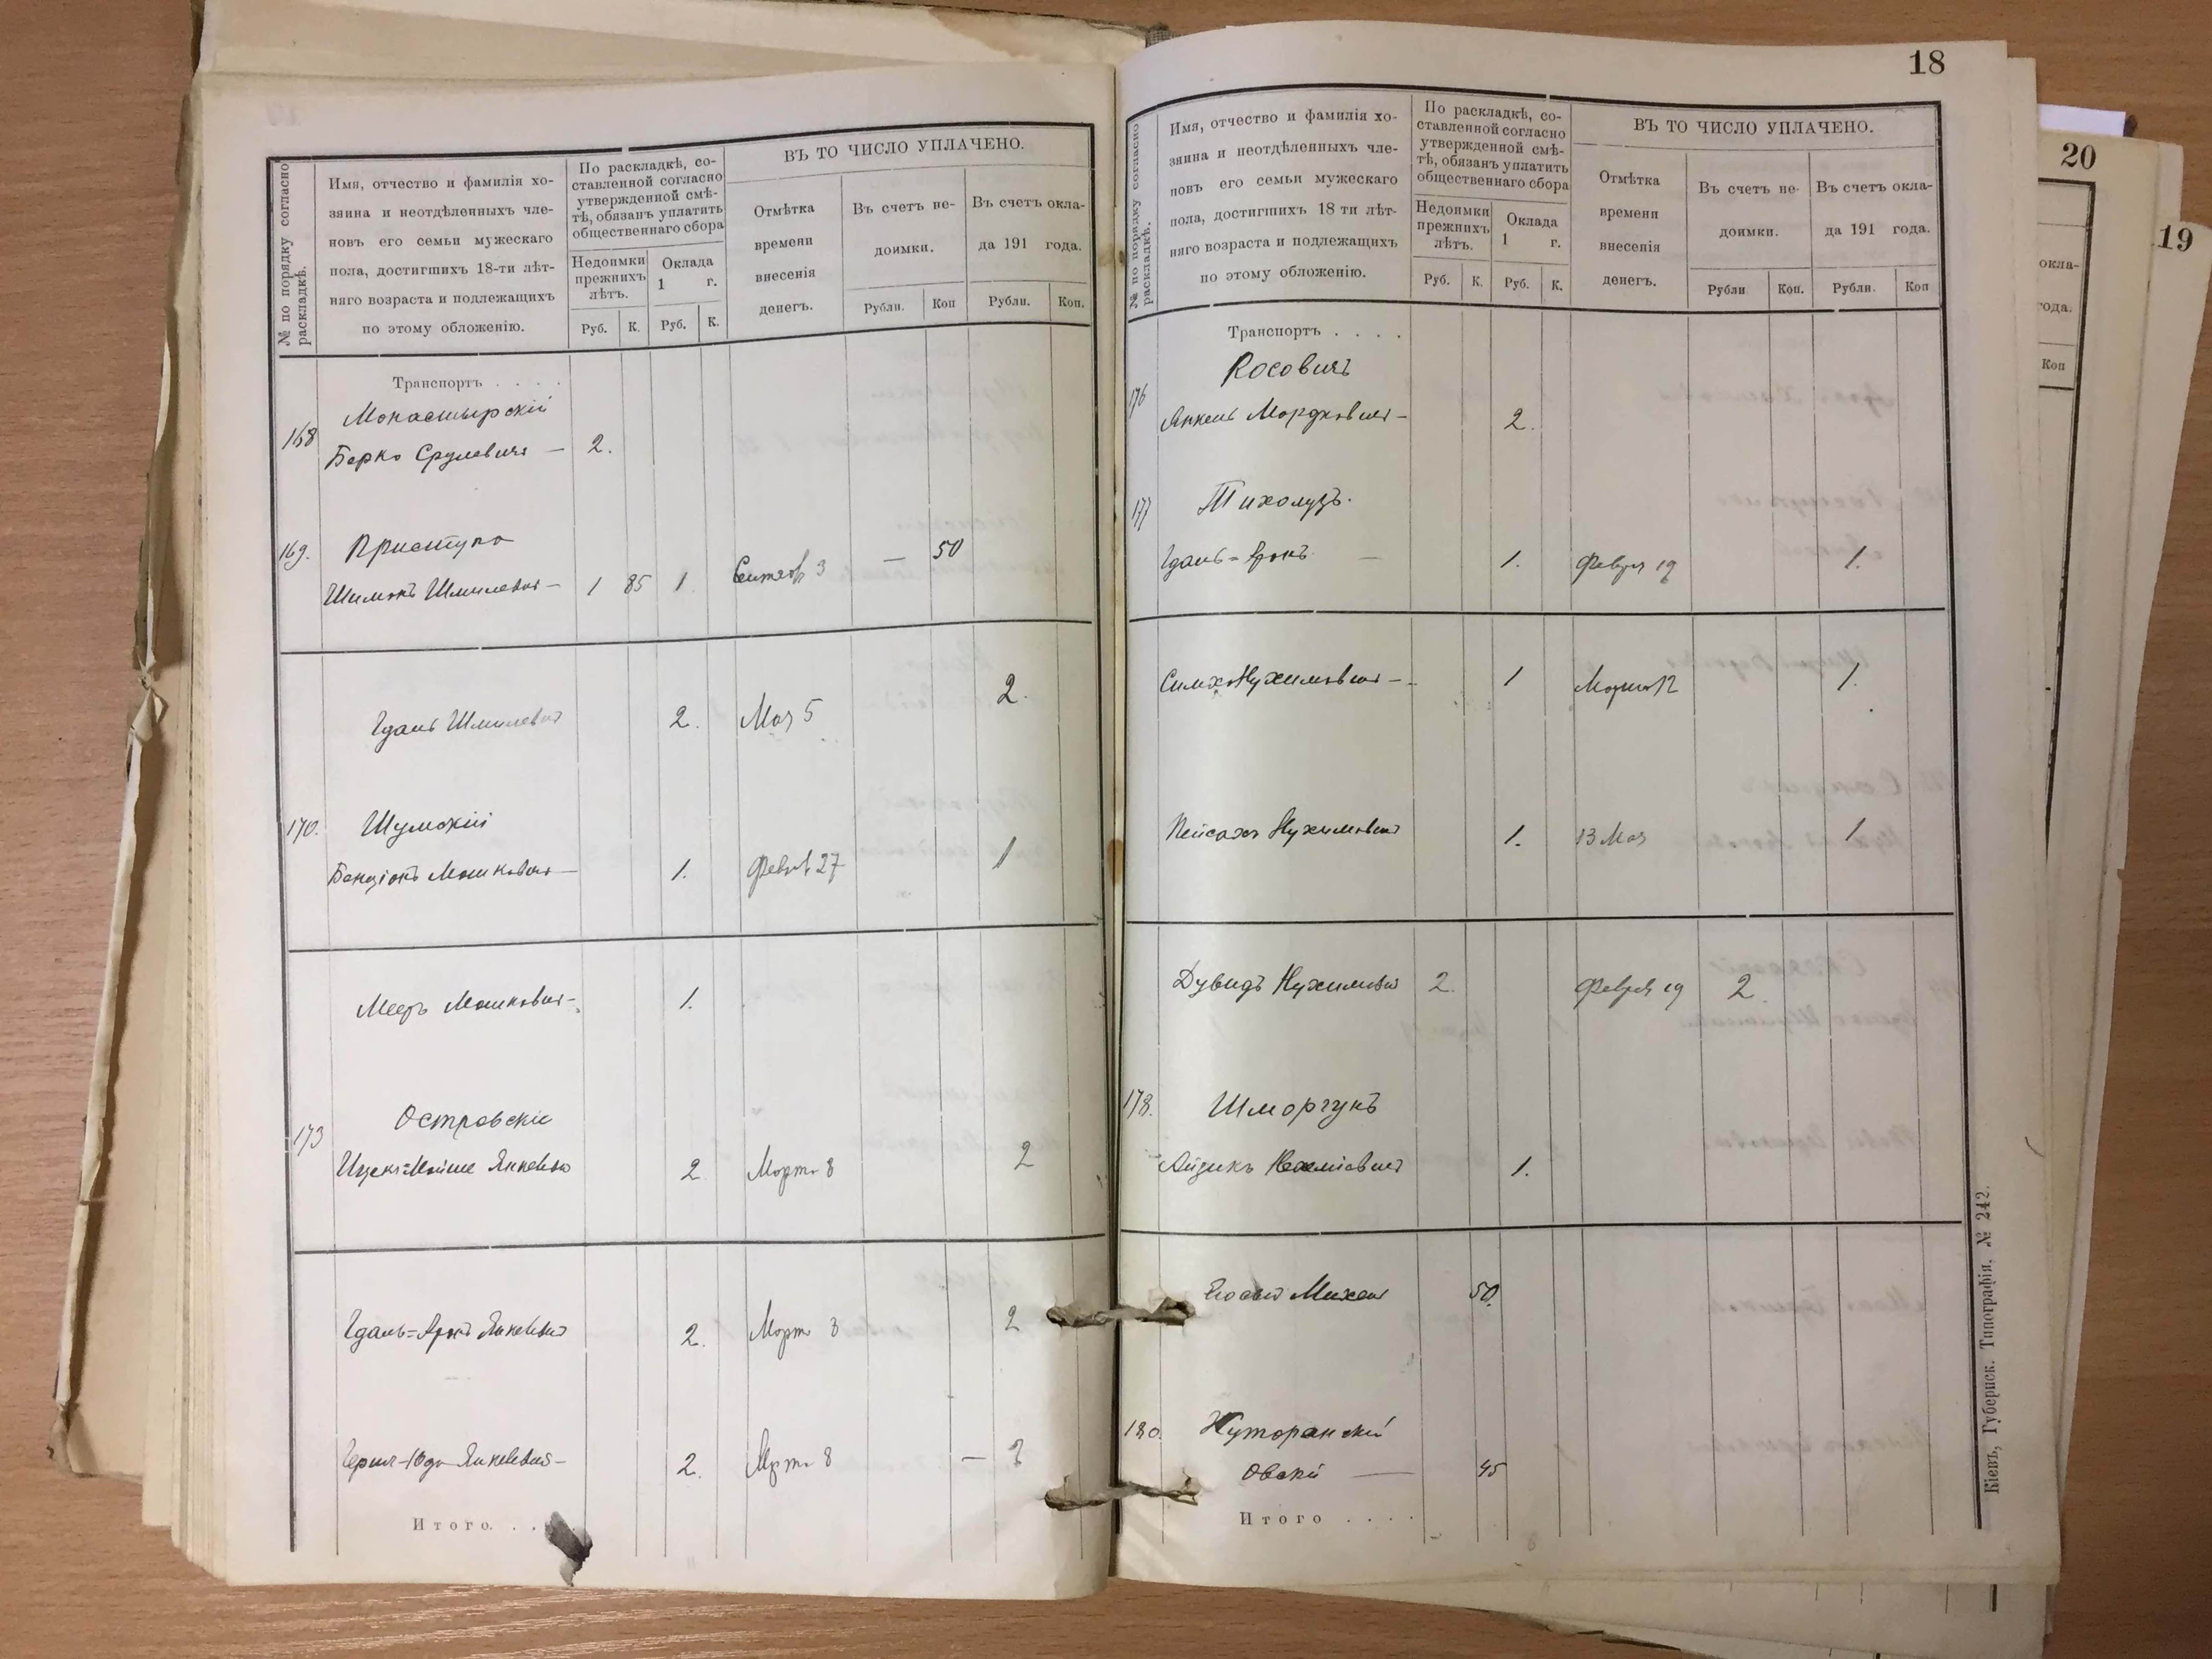 № по порядку согласно раскладкѣ.
Имя, отчество и фамилія хо-
зяина и неотдѣленныхъ чле-
новъ его семьи мужескаго
пола, достигшихъ 18-ти лѣт-
няго возраста и подлежащихъ
по этому обложенію.
По раскладкѣ, со-
ставленной согласно
утвержденной смѣ-
тѣ, обязанъ уплатить
общественнаго сбора
Недоимки
прежнихъ
лѣтъ.
Оклада
1 г.
Руб. К. Руб. К.
ВЪ ТО ЧИСЛО УПЛАЧЕНО.
Отмѣтка
времени
внесенія
денегъ.
Въ счетъ не-
доимки.
Въ счетъ окла-
да 191 года.
Рубли. Коп Рубли. Коп.
Транспортъ . . . .
Монастырскій
168 Берко Срулевичъ — 2.
169. Приступа
Шимонъ Шмилевичъ — 1 85 1. Сентяб 3 — 50
Гдаль Шмилевичъ 2. Мая 5 2.
170. Шумскій
Бенціонъ Мошковичъ — 1. Феврл 27 1
Мееръ Мошковичъ - 1.
Островскій
173 Ицекъ-Мойше Янкелевичъ 2 Марта 8 2
Гдаль-Аронъ Янкелевичъ 2. Марта 8 2
Герш-Юда Янкелевичъ — 2. Марта 8 — 2
Итого. . .
18
№ по порядку согласно раскладкѣ.
Имя, отчество и фамилія хо-
зяина и неотдѣленныхъ чле-
новъ его семьи мужескаго
пола, достигшихъ 18 ти лѣт-
няго возраста и подлежащихъ
по этому обложенію.
По раскладкѣ, со-
ставленной согласно
утвержденной смѣ-
тѣ, обязанъ уплатить
общественнаго сбора
Недоимки
прежнихъ
лѣтъ.
Оклада
1 г.
Руб. К. Руб. К.
ВЪ ТО ЧИСЛО УПЛАЧЕНО.
Отмѣтка
времени
внесенія
денегъ.
Въ счетъ не-
доимки.
Въ счетъ окла-
да 191 года.
Рубли Коп. Рубли. Коп
Транспортъ . . . .
176 Косовичъ
Янкель Мордковичъ — 2.
177 Тихолузъ.
Гдаль-Аронъ — 1. Феврл 19 1.
Симха Нухимовичъ — 1 Марта 12 1.
Пейсахъ Нухимовичъ 1. 13 Мая 1
Дувидъ Нухимовичъ 2. Феврл 19 2.
178. Шморгунъ
Айзикъ Нехеміевичъ 1.
50.
180. Хуторанскій
Овскій — 45
Итого . . . .
Кіевъ, Губернск. Типографія, № 242.
20
окла-
ода.
Коп
19